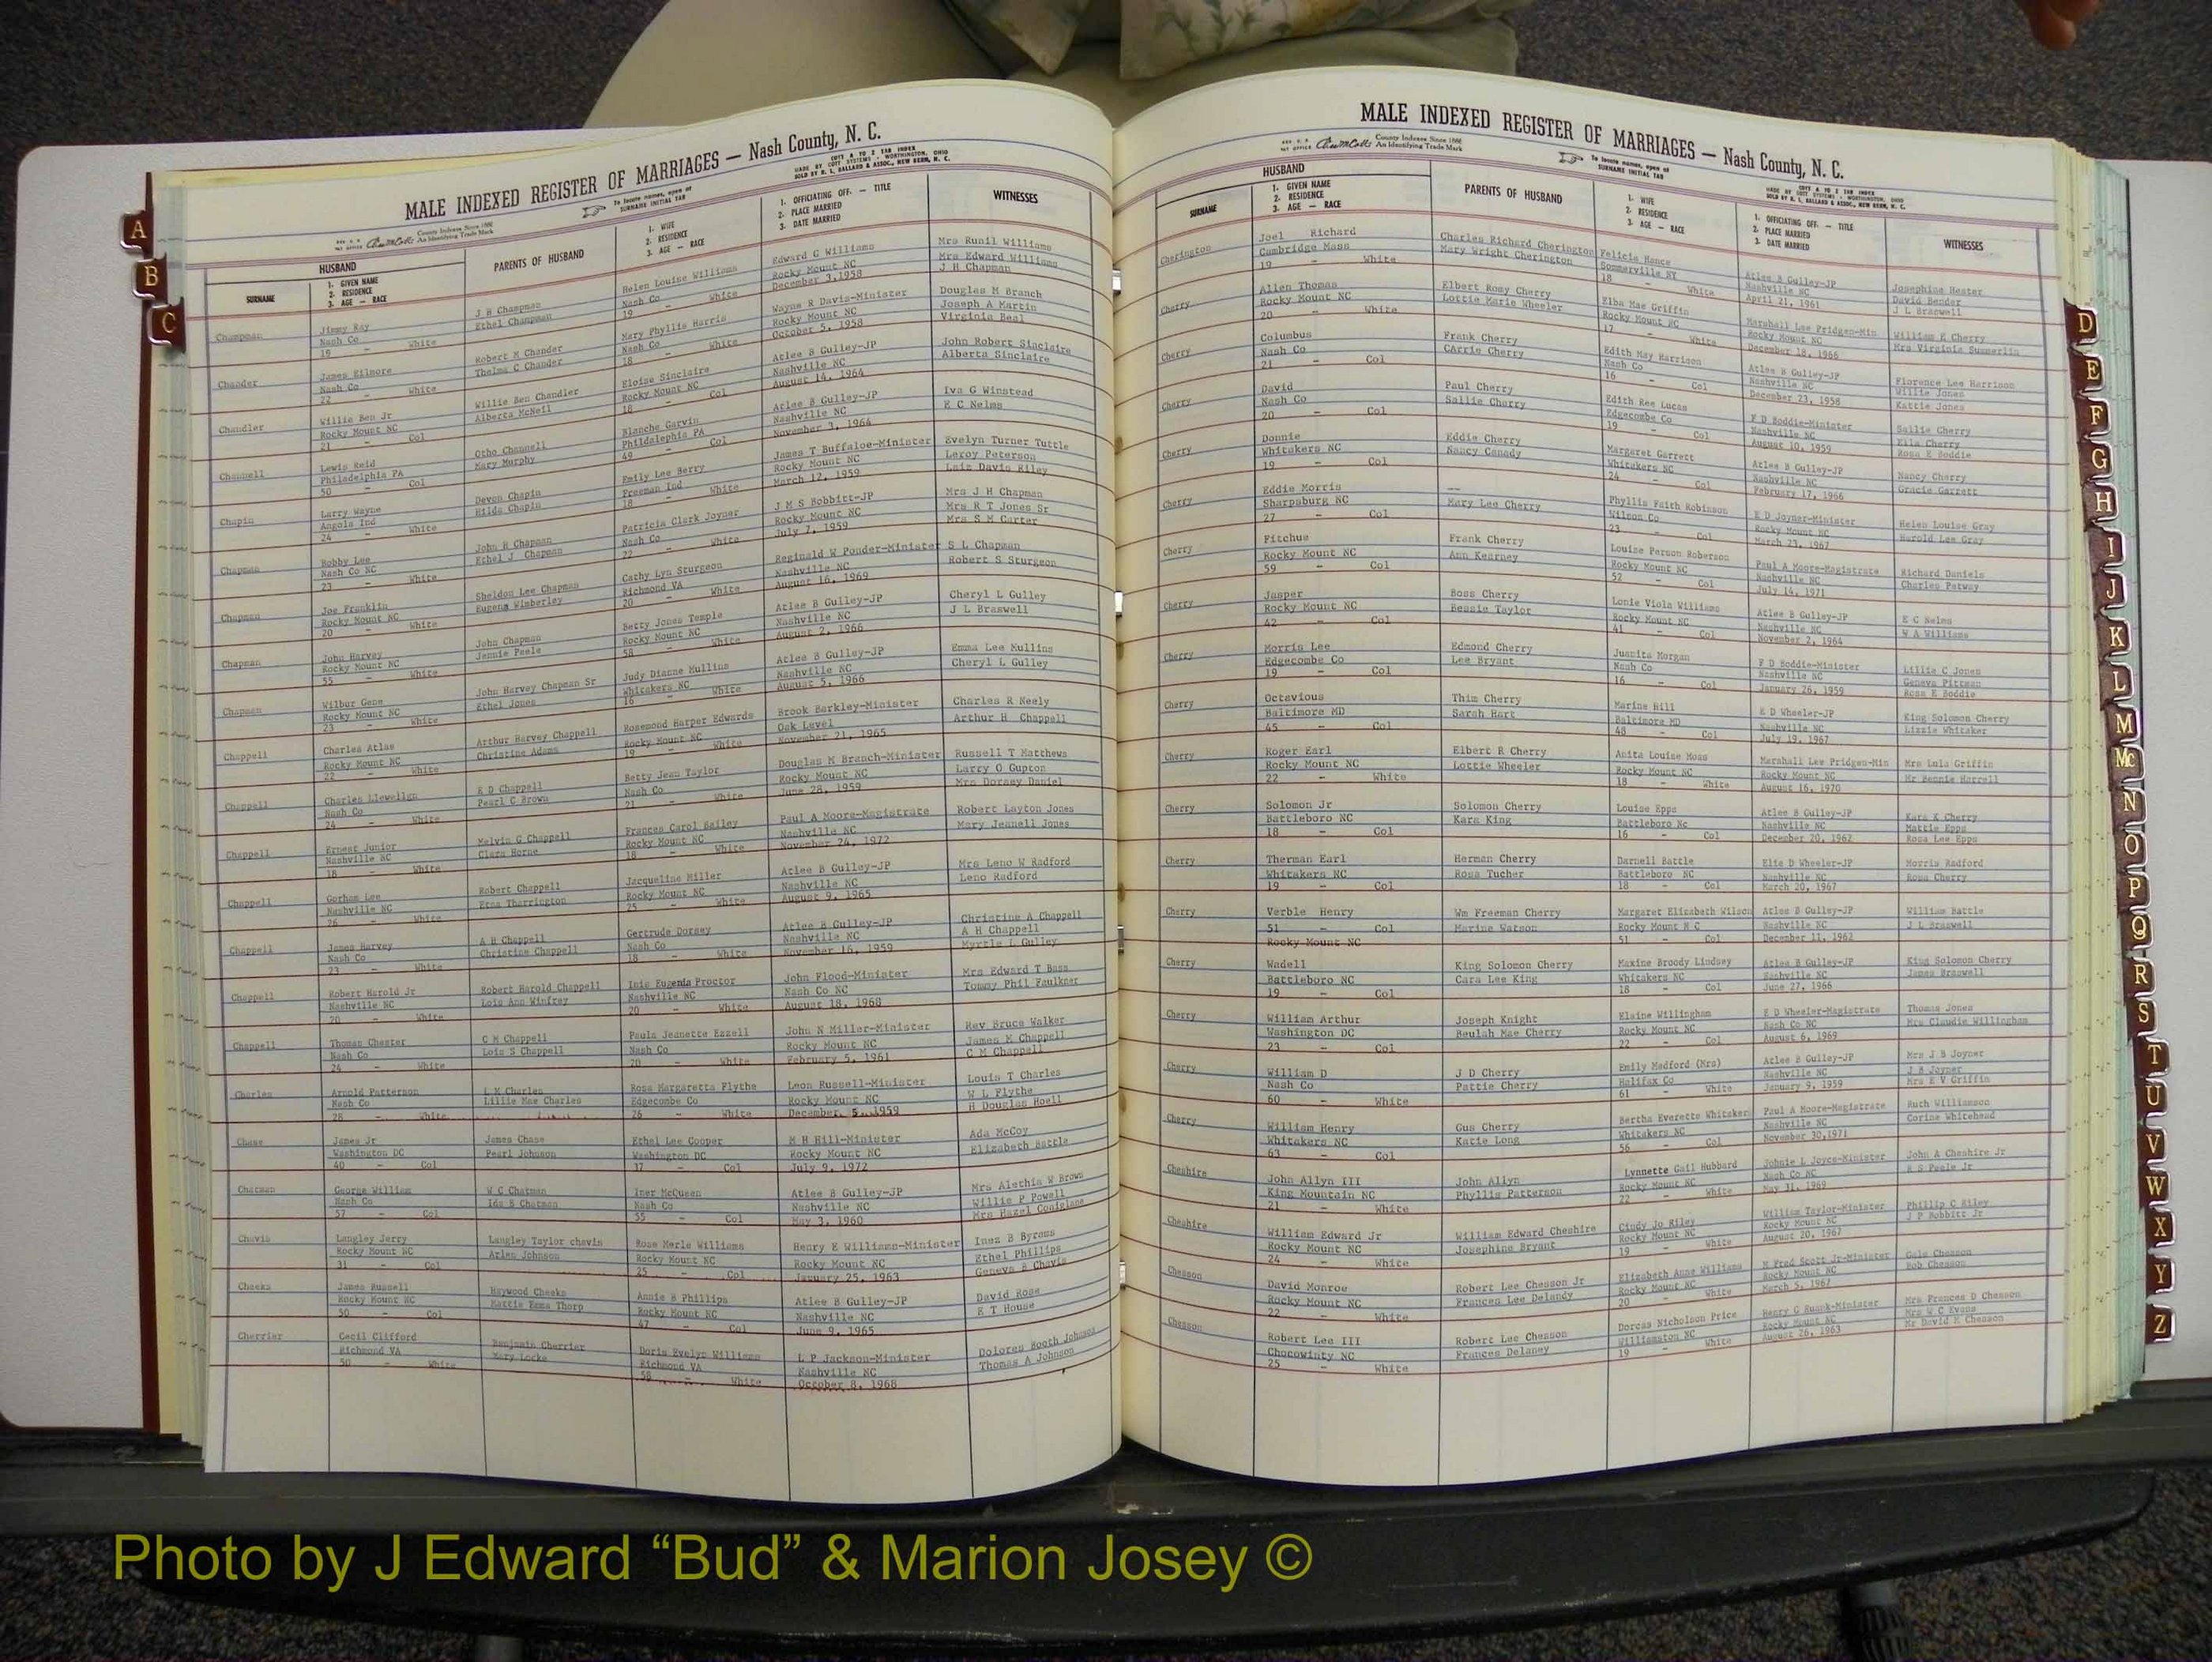 MALE INDEXED REGISTER OF MARRIAGES — Nash County, N. C.
County Indexes Since 1888
An Identifying Trade Mark
To locate names, open at
SURNAME INITIAL TAB
COTT A TO Z TAB INDEX
MADE BY COTT SYSTEMS - WORTHINGTON, OHIO
SOLD BY R. L. BALLARD & ASSOC., NEW BERN, N. C.
HUSBAND
SURNAME
1. GIVEN NAME
2. RESIDENCE
3. AGE — RACE
PARENTS OF HUSBAND
1. WIFE
2. RESIDENCE
3. AGE — RACE
1. OFFICIATING OFF. — TITLE
2. PLACE MARRIED
3. DATE MARRIED
WITNESSES
A
B
C
Champman Jimmy Ray J H Chaspman Helen Louise Williams Edward G Williams Mrs Runil Williams
Nash Co Ethel Chapman Nash Co Rocky Mount NC Mrs Edward Williams
19 - White 19 - White December 3,1958 J H Chapman
Chander James Kilnore Robert K Chander Mary Phyllis Harris Wayne R Davis-Minister Douglas M Branch
Nash Co Thelma C Chander Nash Co Rocky Mount NC Joseph A Martin
22 - White 18 - White October 5, 1958 Virginia Beal
Chandler Willie Ben Jr Willie Ben Chandler Eloise Sinclaire Atlee B Gulley-JP John Robert Sinclaire
Rocky Mount NC Alberta McNeil Rocky Mount NC Nashville NC Alberta Sinclaire
21 - Col 18 - Col August 14, 1964
Channell Lewis Reid Otho Channell Blanche Garvin Atlee B Gulley-JP Iva G Winstead
Philadelphia PA Mary Murphy Phildalephia PA Nashville NC E C Nelms
50 - Col 49 - Col November 3, 1964
Chapin Larry Wayne Devon Chapin Emily Lee Berry James T Buffaloe-Minister Evelyn Turner Tuttle
Angola Ind Hilda Chapin Freeman Ind Rocky Mount NC Leroy Peterson
24 - White 18 - White March 12, 1959 Lois Davis Riley
Chapman Bobby Lee John H Chapman Patricia Clark Joyner J M S Bobbitt-JP Mrs J H Chapman
Nash Co NC Ethel J Chapman Nash Co Rocky Mount NC Mrs R T Jones Sr
23 - White 22 - White July 7, 1959 Mrs S M Carter
Chapman Joe Franklin Sheldon Lee Chapman Cathy Lyn Sturgeon Reginald W Ponder-Minister S L Chapman
Rocky Mount NC Eugena Wimberley Richmond VA Nashville NC Robert S Sturgeon
20 - White 20 - White August 16, 1969
Chapman John Harvey John Chapman Betty Jones Temple Atlee B Gulley-JP Cheryl L Gulley
Rocky Mount NC Jennie Peele Rocky Mount NC Nashville NC J L Braswell
55 - White 58 - White August 2, 1966
Chapman Wilbur Gene John Harvey Chapman Sr Judy Dianne Mullins Atlee B Gulley-JP Emma Lee Mullins
Rocky Mount NC Ethel Jones Whitakers NC Nashville NC Cheryl L Gulley
23 - White 16 - White August 5, 1966
Chappell Charles Atlas Arthur Harvey Chappell Rosemond Harper Edwards Brook Barkley-Minister Charles R Neely
Rocky Mount NC Christine Adams Rocky Mount NC Oak Level Arthur H Chappell
22 - White 19 - White November 21, 1965
Chappell Charles Llewellyn E D Chappell Betty Jean Taylor Douglas M Branch-Minister Russell T Matthews
Nash Co Pearl C Brown Nash Co Rocky Mount NC Larry O Gupton
24 - White 21 - White June 28, 1959 Mrs Dorsey Daniel
Chappell Ernest Junior Melvin G Chappell Frances Carol Bailey Paul A Moore-Magistrate Robert Layton Jones
Nashville NC Clara Horne Rocky Mount NC Nashville NC Mary Jeanell Jones
18 - White 18 - White November 24, 1972
Chappell Gorham Lee Robert Chappell Jacqueline Miller Atlee B Gulley-JP Mrs Leno W Radford
Nashville NC Erna Tharrington Rocky Mount NC Nashville NC Leno Radford
26 - White 25 - White August 9, 1965
Chappell James Harvey A H Chappell Gertrude Dorsey Atlee B Gulley-JP Christine A Chappell
Nash Co Christine Chappell Nash Co Nashville NC A H Chappell
23 - White 18 - White November 16, 1959 Myrtle L Gulley
Chappell Robert Harold Jr Robert Harold Chappell Inis Eugenia Proctor John Flood-Minister Mrs Edward T Bass
Nashville NC Lois Ann Winfrey Nashville NC Nash Co NC Tommy Phil Faulkner
20 - White 20 - White August 18, 1968
Chappell Thomas Chester C M Chappell Paula Jeanette Ezzell John N Miller-Minister Rev Bruce Walker
Nash Co Lois S Chappell Nash Co Rocky Mount NC James M Chappell
24 - White 20 - White February 5, 1961 C M Chappell
Charles Arnold Patterson L K Charles Rosa Margaretta Flythe Leon Russell-Minister Louis T Charles
Nash Co Lillie Mae Charles Edgecombe Co Rocky Mount NC W L Flythe
28 - White 26 - White December 5, 1959 H Douglas Hoell
Chase James Jr James Chase Ethel Lee Cooper M H Hill-Minister Ada McCoy
Washington DC Pearl Johnson Washington DC Rocky Mount NC Elizabeth Battle
40 - Col 37 - Col July 9, 1972
Chatman George William W C Chatman Iner McQueen Atlee B Gulley-JP Mrs Alethia W Brown
Nash Co Ida B Chatman Nash Co Nashville NC Willie P Powell
57 - Col 55 - Col May 3, 1960 Mrs Hazel
Chavis Langley Jerry Langley Taylor chavis Rose Merle Williams Henry E Williams-Minister Inez B Byrams
Rocky Mount NC Arlen Johnson Rocky Mount NC Rocky Mount NC Ethel Phillips
31 - Col 25 - Col January 25, 1963 Geneva B Chavis
Cheeks James Russell Haywood Cheeks Annie B Phillips Atlee B Gulley-JP David Rose
Rocky Mount NC Mattie Emma Thorp Rocky Mount NC Nashville NC E T House
50 Col 47 - Col June 9, 1965
Cherrier Cecil Clifford Benjamin Cherrier Doris Evelyn Williams L P Jackson-Minister Dolores Booth Johnson
Richmond VA Mary Locke Richmond VA Nashville NC Thomas A Johnson
50 - White 58 - White October 8, 1968
MALE INDEXED REGISTER OF MARRIAGES — Nash County, N. C.
County Indexes Since 1888
An Identifying Trade Mark
To locate names, open at
SURNAME INITIAL TAB
COTT A TO Z TAB INDEX
MADE BY COTT SYSTEMS - WORTHINGTON, OHIO
SOLD BY R. L. BALLARD & ASSOC., NEW BERN, N. C.
HUSBAND
SURNAME
1. GIVEN NAME
2. RESIDENCE
3. AGE — RACE
PARENTS OF HUSBAND
1. WIFE
2. RESIDENCE
3. AGE — RACE
1. OFFICIATING OFF. — TITLE
2. PLACE MARRIED
3. DATE MARRIED
WITNESSES
Cherington Joel Richard Charles Richard Cherington Felicia Hance Atlee B Gulley-JP Josephine Hester
Cambridge Mass Mary Wright Cherington Sommerville NY Nashville NC David Bender
19 - White 18 - White April 21, 1961 J L Braswell
Cherry Allen Thomas Elbert Rosy Cherry Elba Mae Griffin Marshall Lee Pridgen-Min William E Cherry
Rocky Mount NC Lottie Marie Wheeler Rocky Mount NC Rocky Mount NC Mrs Virginia Summerlin
20 - White 17 - White December 18, 1966
Cherry Columbus Frank Cherry Edith May Harrison Atlee B Gulley-JP Florence Lee Harrison
Nash Co CArrie Cherry Nash Co Nashville NC Willie Jones
21 - Col 16 - Col December 23, 1958 Kattie Jones
Cherry David Paul Cherry Edith Ree Lucas F D Boddie-Minister Sallie Cherry
Nash Co Sallie Cherry Edgecombe Co Nashville NC Ella Cherry
20 - Col 19 - Col August 10, 1959 Rosa E Boddie
Cherry Donnie Eddie Cherry Margaret Garrett Atlee B Gulley-JP Nancy Cherry
Whitakers NC Nancy Canady Whitakers NC Nashville NC Gracie Garrett
19 - Col 24 - Col February 17, 1966
Cherry Eddie Morris -- Phyllis Faith Robinson E D Joyner-Minister Helen Louise Gray
Sharpsburg NC Mary Lee Cherry Wilson Co Rocky Mount NC Harold Lee Gray
27 - Col 23 - Col March 23, 1967
Cherry Fitchue Frank Cherry Louise Person Roberson Paul A Moore-Magistrate Richard Daniels
Rocky Mount NC Ann Kearney Rocky Mount NC Nashville NC Charles Petway
59 - Col 52 - Col July 14, 1971
Cherry Jasper Boss Cherry Lonie Viola Williams Atlee B Gulley-JP E C Nelms
Rocky Mount NC Bessie Taylor Rocky Mount NC Nashville NC W A Williams
42 - Col 41 - Col November 2, 1964
Cherry Morris Lee Edmond Cherry Juanita Morgan F D Boddie-Minister Lillie C Jones
Edgecombe Co Lee Bryant Nash Co Nashville NC Geneva Pittman
19 - Col 16 - Col January 26, 1959 Rosa E Boddie
Cherry Octavious Thim Cherry Marine Hill E D Wheeler-JP King Solomon Cherry
Baltimore MD Sarah Hart Baltimore MD Nashville NC Lizzie Whitaker
45 - Col 48 - Col July 19, 1967
Cherry Roger Earl Elbert R Cherry Anita Louise Moss Marshall Lee Pridgen-Min Mrs Lula Griffin
Rocky Mount NC Lottie Wheeler Rocky Mount NC Rocky Mount NC Mr Bennie Harrell
22 - White 18 - White August 16, 1970
Cherry Solomon Jr Solomon Cherry Louise Epps Atlee B Gulley-JP Kara K Cherry
Battleboro NC Kara King Battleboro Nc Nashville NC Mattie Epps
18 - Col 16 - Col December 20, 1962 Rosa Lee Epps
Cherry Therman Earl Herman Cherry Darnell Battle Elie D Wheeler-JP Morris Radford
Whitakers NC Rosa Tucher Battleboro NC Nashville NC Rosa Cherry
19 - Col 18 - Col March 20, 1967
Cherry Verble Henry Wm Freeman Cherry Margaret Elizabeth Wilson Atlee B Gulley-JP William Battle
51 - Col Marine Watson Rocky Mount N C Nashville NC J L Braswell
Rocky Mount NC 51 - Col December 11, 1962
Cherry Wadell King Solomon Cherry Maxine Broody Lindsey Atlee B Gulley-JP King Solomon Cherry
Battleboro NC Cara Lee King Whitakers NC Nashville NC James Braswell
19 - Col 18 - Col June 27, 1966
Cherry William Arthur Joseph Knight Elaine Willingham E D Wheeler-Magistrate Thomas Jones
Washington DC Beulah Mae Cherry Rocky Mount NC Nash Co NC Mrs Claudie Willingham
23 - Col 22 - Col August 6, 1969
Cherry William D J D Cherry Emily Medford (Mrs) Atlee B Gulley-JP Mrs J B Joyner
Nash Co Pattie Cherry Halifax Co Nashville NC J B Joyner
60 - White 61 - White January 9, 1959 Mrs E V Griffin
Cherry William Henry Gus Cherry Bertha Everette Whitaker Paul A Moore-Magistrate Ruth Williamson
Whitakers NC Katie Long Whitakers NC Nashville NC Corine Whitehead
63 - Col 56 - Col November 30,1971
Cheshire John Allyn III John Allyn Lynnette Gail Hubbard Johnie L Joyce-Minister John A Cheshire Jr
King Mountain NC Phyllis Patterson Rocky Mount NC Nash Co NC R S Peele Jr
21 - White 22 - White May 31, 1969
Cheshire William Edward Jr William Edward Cheshire Cindy Jo Riley William Taylor-Minister Phillip C Riley
Rocky Mount NC Josephine Bryant Rocky Mount NC Rocky Mount NC J P Bobbitt Jr
24 - White 19 - White August 20, 1967
Chesson David Monroe Robert Lee Chesson Jr Elizabeth Anne Williams M Fred Scott Jr-Minister Gale Chesson
Rocky Mount NC Frances Lee Delandy Rocky Mount NC Rocky Mount NC Bob Chesson
22 - White 20 - White March 5, 1967
Chesson Robert Lee III Robert Lee Chesson Dorcas Nicholson Price Henry G Ruark-Minister Mrs Frances D Chesson
Chocowinty NC Frances Delaney Williamston NC Rocky Mount NC Mrs W C Evans
25 - White 19 - White August 26, 1963 Mr David M Chesson
D
E
F
G
H
I
J
K
L
M
Mc
N
O
P
Q
R
S
T
U
V
W
X
Y
Z
Photo by J Edward “Bud” & Marion Josey ©